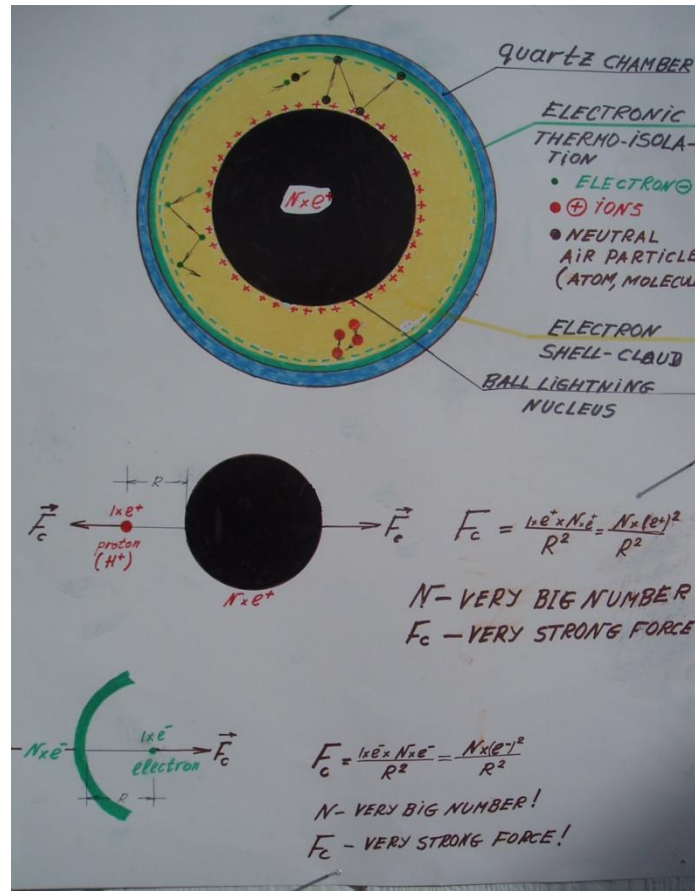 quartz CHAMBER
ELECTRONIC
THERMO-ISOLA-
TION
• ELECTRON ⊖
• ⊕ IONS
• NEUTRAL
AIR PARTICLE
(ATOM, MOLECUL
N×e⁺
ELECTRON
SHELL-CLOUD
BALL LIGHTNING
NUCLEUS
R
F⃗c
1×e⁺
proton
(H⁺)
N×e⁺
F⃗e
Fc = 1×e⁺×N×e⁺/R² = N×(e⁺)²/R²
N – VERY BIG NUMBER
Fc – VERY STRONG FORCE
N×e⁻
1×e⁻
electron
F⃗c
R
Fc = 1×e⁻×N×e⁻/R² = N×(e⁻)²/R²
N – VERY BIG NUMBER!
Fc – VERY STRONG FORCE!